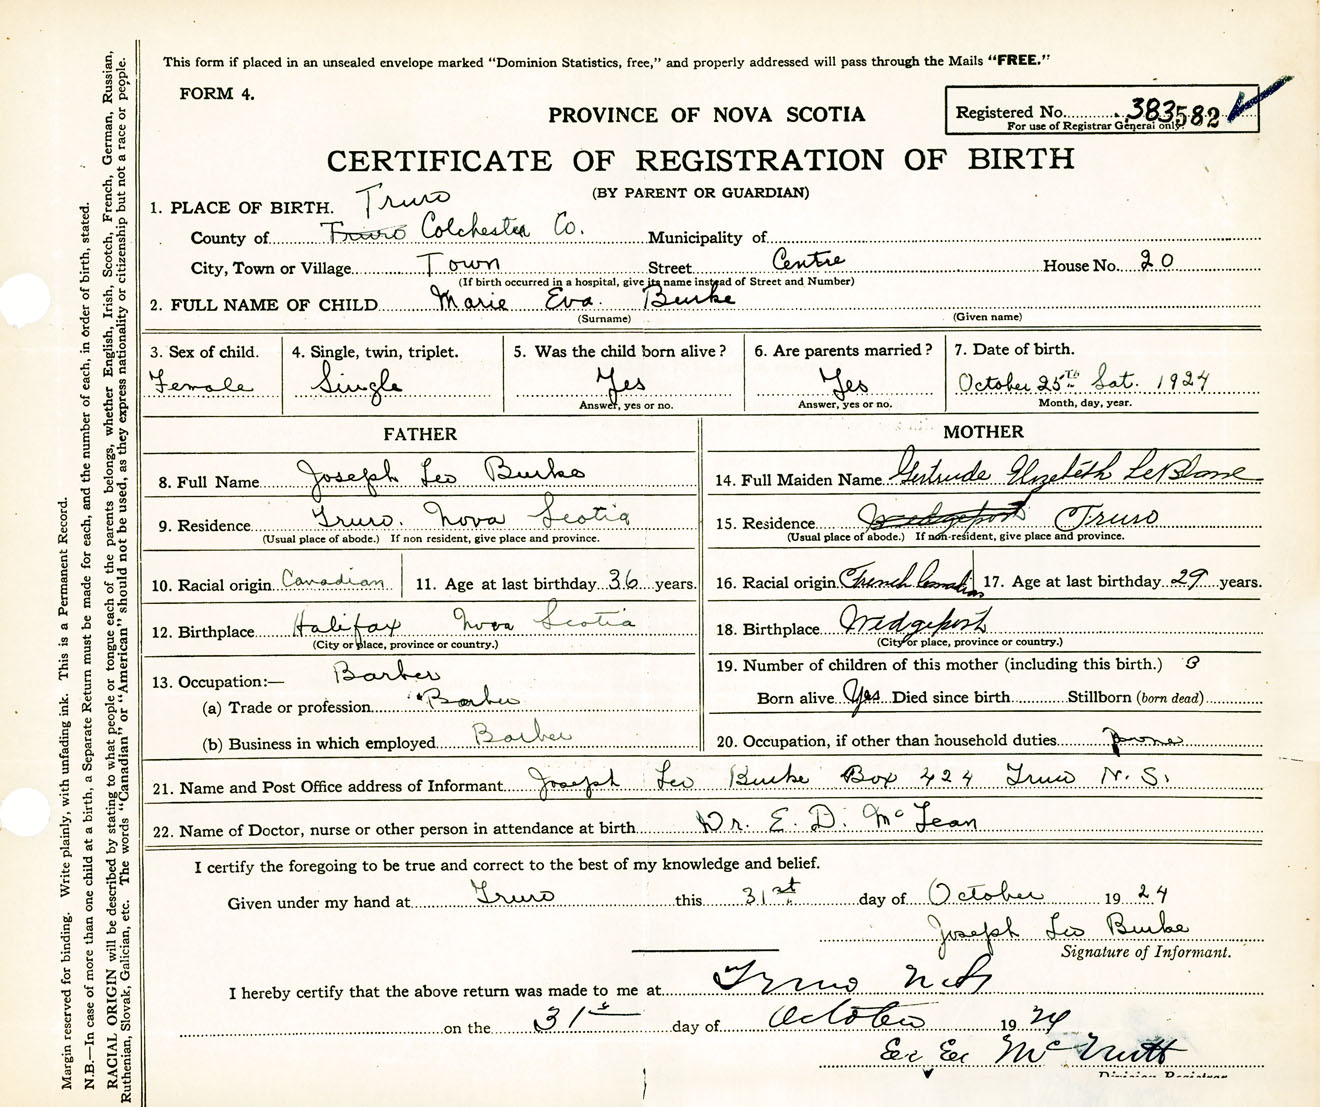 This form if placed in an unsealed envelope marked "Dominion Statistics, free," and properly addressed will pass through the Mails "FREE."
FORM 4.
PROVINCE OF NOVA SCOTIA
Registered No. 383582
For use of Registrar General only.
CERTIFICATE OF REGISTRATION OF BIRTH
(BY PARENT OR GUARDIAN)
1. PLACE OF BIRTH. Truro
County of Truro Colchester Co. Municipality of
City, Town or Village Town Street Centre House No. 20
(If birth occurred in a hospital, give its name instead of Street and Number)
2. FULL NAME OF CHILD Marie Eva. Burke
(Surname) (Given name)
3. Sex of child. 4. Single, twin, triplet. 5. Was the child born alive? 6. Are parents married? 7. Date of birth.
Female Single Yes Yes October 25th Sat. 1924
Answer, yes or no. Answer, yes or no. Month, day, year.
FATHER
8. Full Name Joseph Leo Burke
9. Residence Truro. Nova Scotia
(Usual place of abode.) If non resident, give place and province.
10. Racial origin Canadian 11. Age at last birthday 36 years.
12. Birthplace Halifax Nova Scotia
(City or place, province or country.)
13. Occupation:— Barber
(a) Trade or profession Barber
(b) Business in which employed Barber
MOTHER
14. Full Maiden Name Gertrude Elizabeth LeBlanc
15. Residence Wedgeport Truro
(Usual place of abode.) If non-resident, give place and province.
16. Racial origin French Canadian 17. Age at last birthday 29 years.
18. Birthplace Wedgeport
(City or place, province or country.)
19. Number of children of this mother (including this birth.) 3
Born alive Yes Died since birth Stillborn (born dead)
20. Occupation, if other than household duties none
21. Name and Post Office address of Informant Joseph Leo Burke Box 424 Truro N.S.
22. Name of Doctor, nurse or other person in attendance at birth Dr. E. D. McLean
I certify the foregoing to be true and correct to the best of my knowledge and belief.
Given under my hand at Truro this 31st day of October 1924
Joseph Leo Burke
Signature of Informant.
I hereby certify that the above return was made to me at Truro N.S.
on the 31st day of October 1924
McNutt
Division Registrar
Margin reserved for binding. Write plainly, with unfading ink. This is a Permanent Record.
N.B.—In case of more than one child at a birth, a Separate Return must be made for each, and the number of each, in order of birth, stated.
RACIAL ORIGIN will be described by stating to what people or tongue each of the parents belongs, whether English, Irish, Scotch, French, German, Russian,
Ruthenian, Slovak, Galician, etc. The words "Canadian" or "American" should not be used, as they express nationality or citizenship but not a race or people.